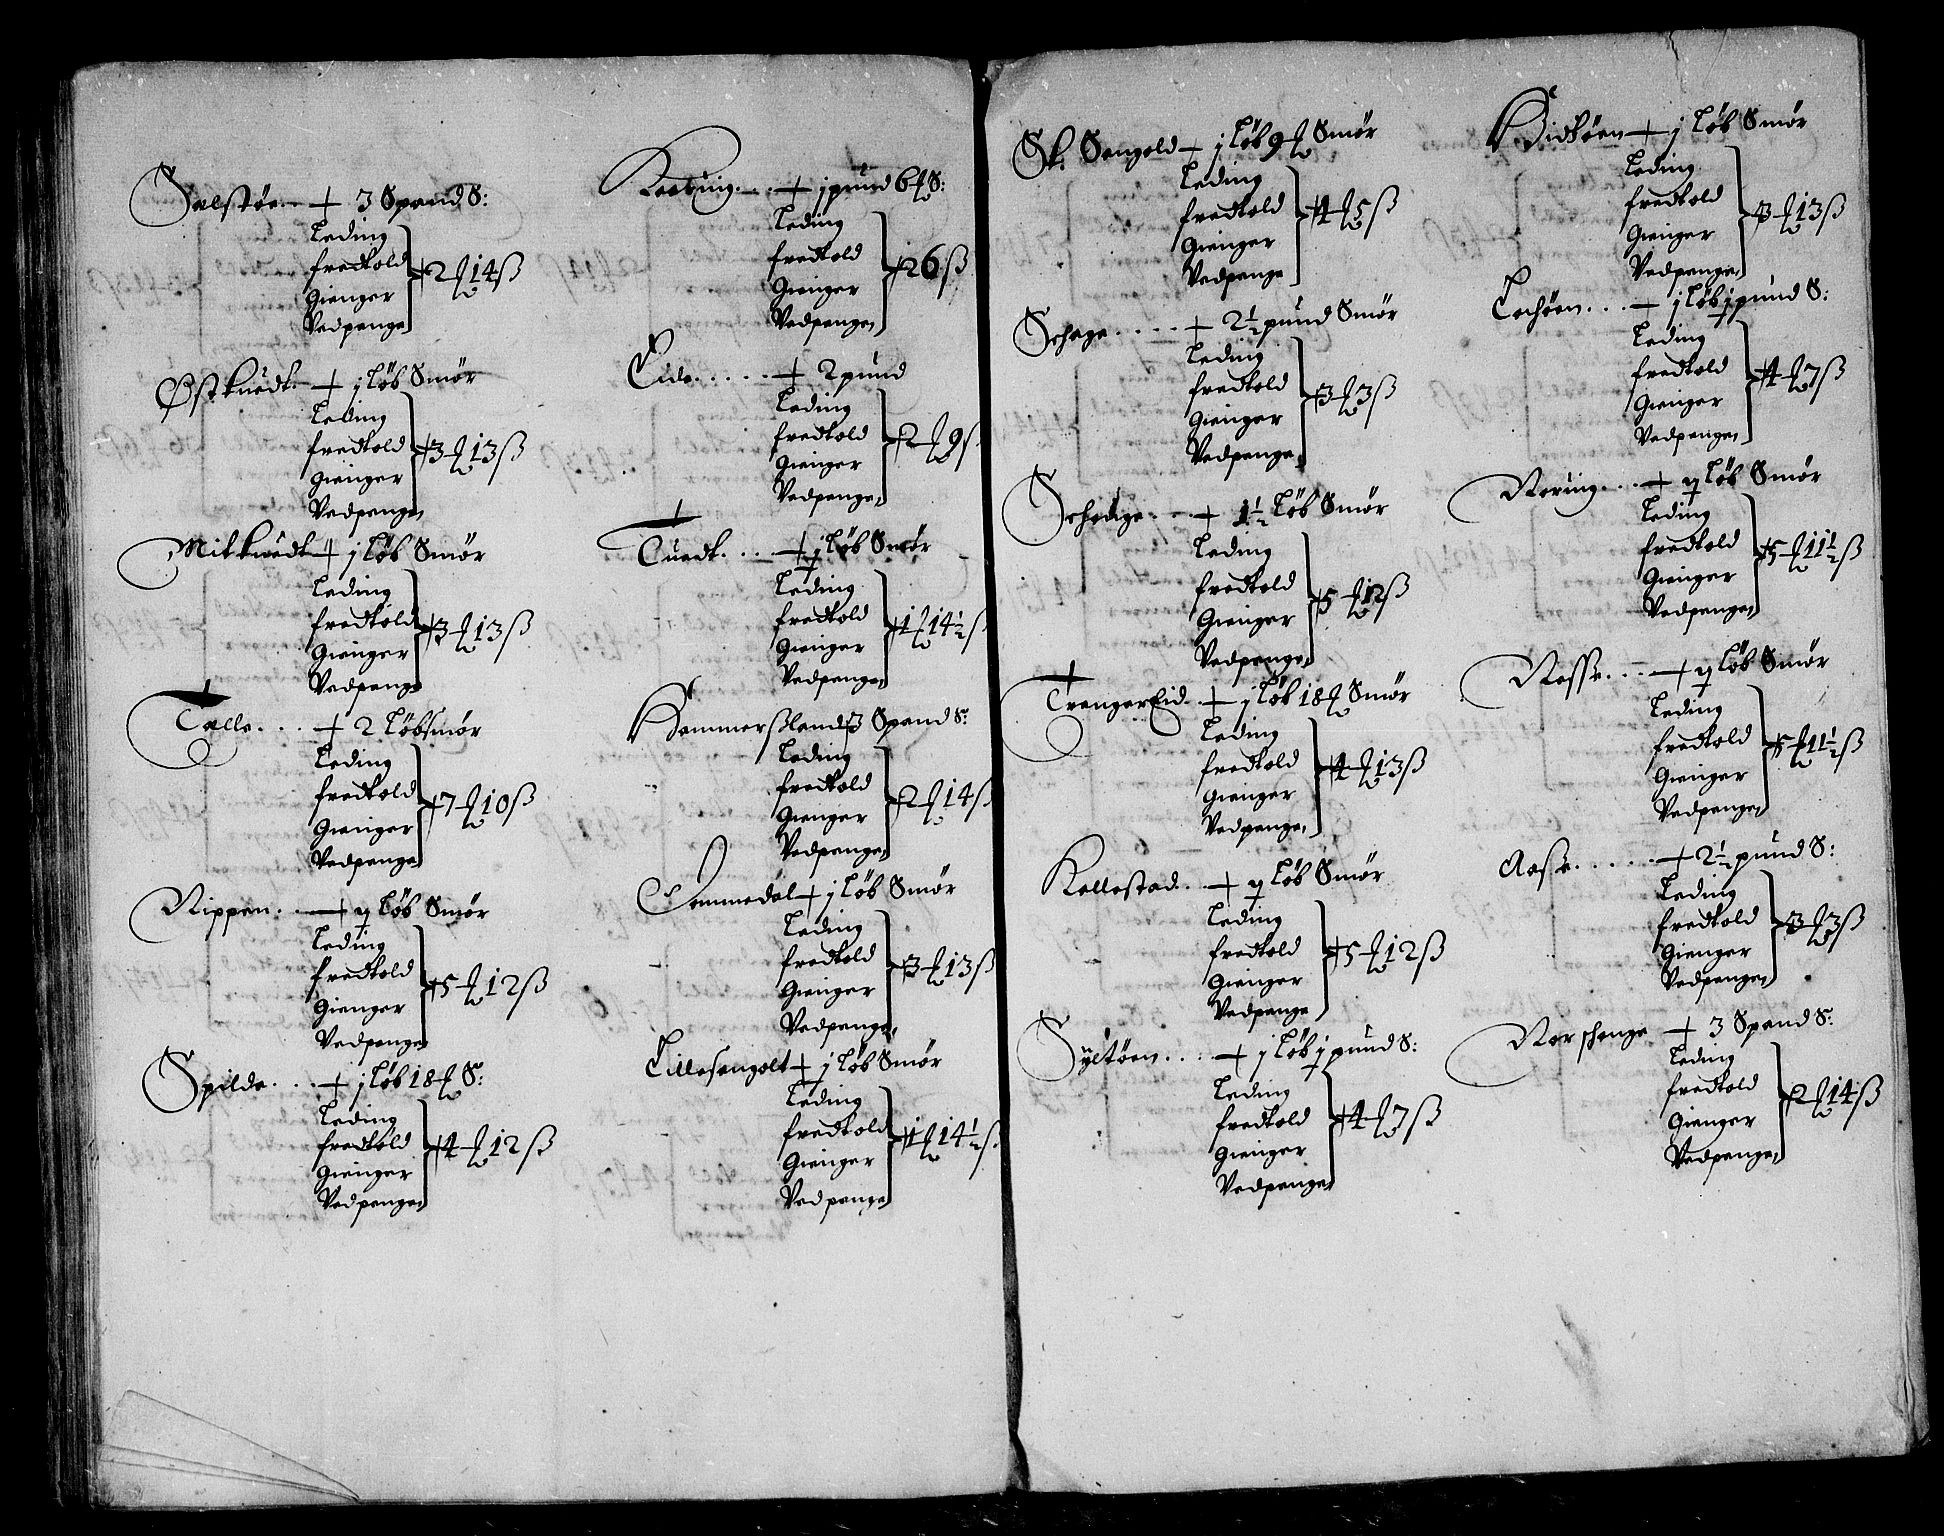 Salstøe + 3 Spand S:
Leding
fredtold
Gienger
Vedpenge
+ 2 # 14 ß
Østkuedt + j løb Smør
Leding
fredtold
Gienger
Vedpenge
+ 3 # 13 ß
Mitkuedt + j løb Smør
Leding
fredtold
Gienger
Vedpenge
+ 3 # 13 ß
Talle + 2 løb Smør
Leding
fredtold
Gienger
Vedpenge
+ 7 # 10 ß
Rippen + ɏ løb Smør
Leding
fredtold
Gienger
Vedpenge
+ 5 # 12 ß
Spilde + j løb 18 # S:
Leding
fredtold
Gienger
Vedpenge
+ 4 # 12 ß
+ j pund 6 # S:
Leding
fredtold
Gienger
Vedpenge
+ 26 ß
Eide + 2 pund
Leding
fredtold
Gienger
Vedpenge
+ 2 # 9 ß
Tuedt + ɉ løb Smør
Leding
fredtold
Gienger
Vedpenge
+ 1 # 14½ ß
Hammersland 3 Spand S:
Leding
fredtold
Gienger
Vedpenge
+ 2 # 14 ß
Semmedal + j løb Smør
Leding
fredtold
Gienger
Vedpenge
+ 3 # 13 ß
Lillesangolt + ɉ løb Smør
Leding
fredtold
Gienger
Vedpenge
+ 1 # 14½ ß
St. Sangold + j løb 9 # Smør
Leding
fredtold
Gienger
Vedpenge
+ 4 # 5 ß
Schage + 2½ pund Smør
Leding
fredtold
Gienger
Vedpenge
+ 3 # 3 ß
Schodge + 1½ løb Smør
Leding
fredtold
Gienger
Vedpenge
+ 5 # 12 ß
TrengerEid + j løb 18 # Smør
Leding
fredtold
Gienger
Vedpenge
+ 4 # 13 ß
Kallestad + ɏ løb Smør
Leding
fredtold
Gienger
Vedpenge
+ 5 # 12 ß
Syltøen + j løb ɉ pund S:
Leding
fredtold
Gienger
Vedpenge
+ 4 # 7 ß
Bidtøen + j løb Smør
Leding
fredtold
Gienger
Vedpenge
+ 3 # 13 ß
Lochøen + j løb ɉ pund S:
Leding
fredtold
Gienger
Vedpenge
+ 4 # 7 ß
Røring + ɏ løb Smør
Leding
fredtold
Gienger
Vedpenge
+ 5 # 11½ ß
Rosse + ɏ løb Smør
Leding
fredtold
Gienger
Vedpenge
+ 5 # 11½ ß
Aase + 2½ pund S:
Leding
fredtold
Gienger
Vedpenge
+ 3 # 3 ß
Vorschenge + 3 Spand S:
Leding
fredtold
Gienger
Vedpenge
+ 2 # 14 ß